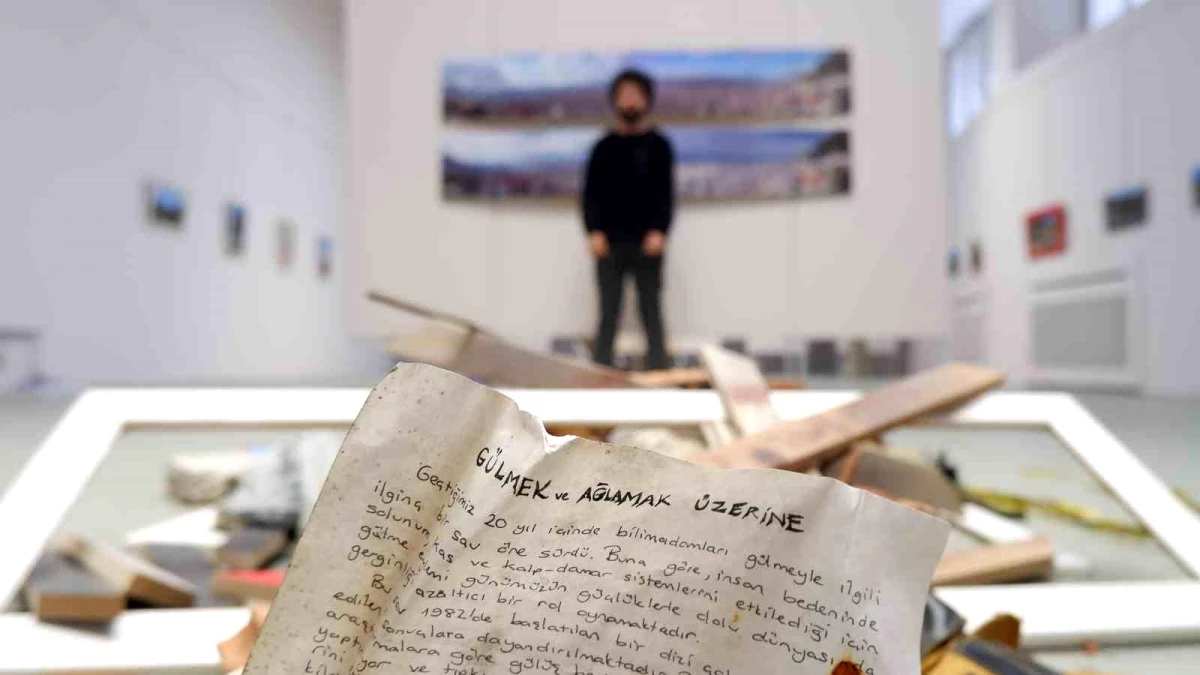 GÜLMEK ve AĞLAMAK ÜZERİNE
Geçtiğimiz 20 yıl içinde bilimadamları gülmeyle ilgili
ilginç bir sav öne sürdü. Buna göre, insan bedeninde
solunum, kas ve kalp-damar sistemlerini etkilediği için
gülme eylemi günümüzün güçlüklerle dolu dünyasında
gerginliği azaltıcı bir rol oynamaktadır.
Bu sav 1982'de başlatılan bir dizi
edilen dayandırılmaktadır
göre gülüş
ve